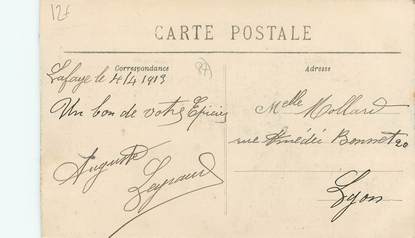 12f
CARTE POSTALE
Correspondance
87
Adresse
Lafaye le 4/4 1913
Un bon de votre Epicier
Auguste
Leyraud
Melle Mollard
rue Amédée Bonnet 20
Lyon